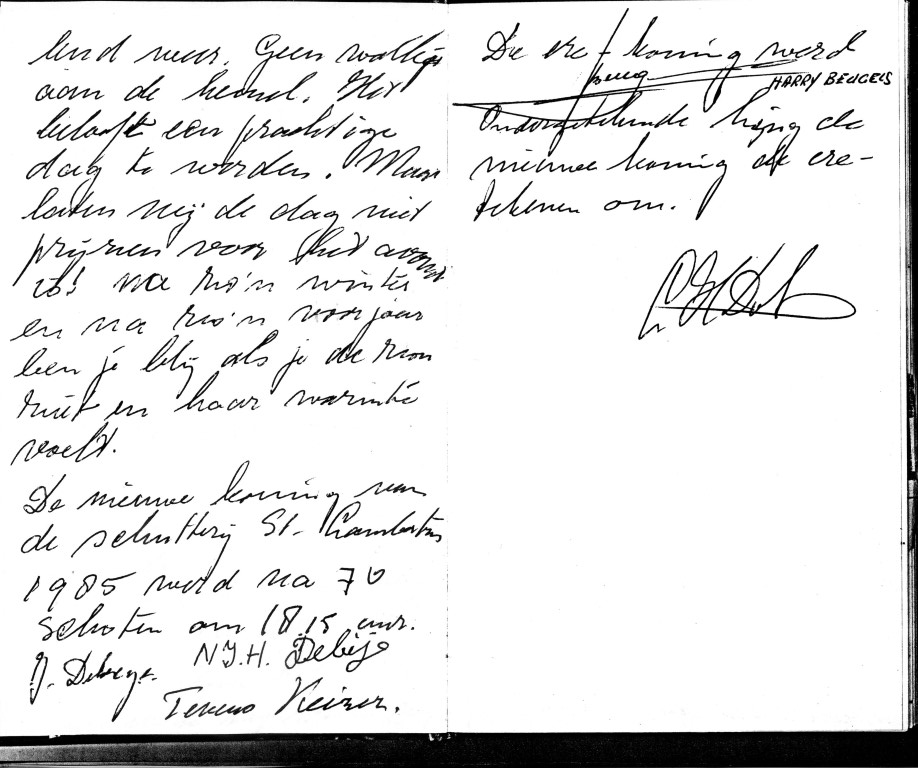 lend weer. Geen wolkje
aan de hemel. Het
belooft een prachtige
dag te worden. Maar
laten wij de dag niet
prijzen voor het avond
is! na zo'n winter
en na zo'n voorjaar
ben je blij als je de zon
ziet en haar warmte
voelt.
De nieuwe koning van
de schutterij St. Lambertus
1985 werd na 70
schoten om 18.15 uur.
J. Debeye. N.J.H. Debije
Keizer.
De ere-koning werd
HARRY BEUGELS
Ondergetekende hing de
nieuwe koning de ere-
tekenen om.